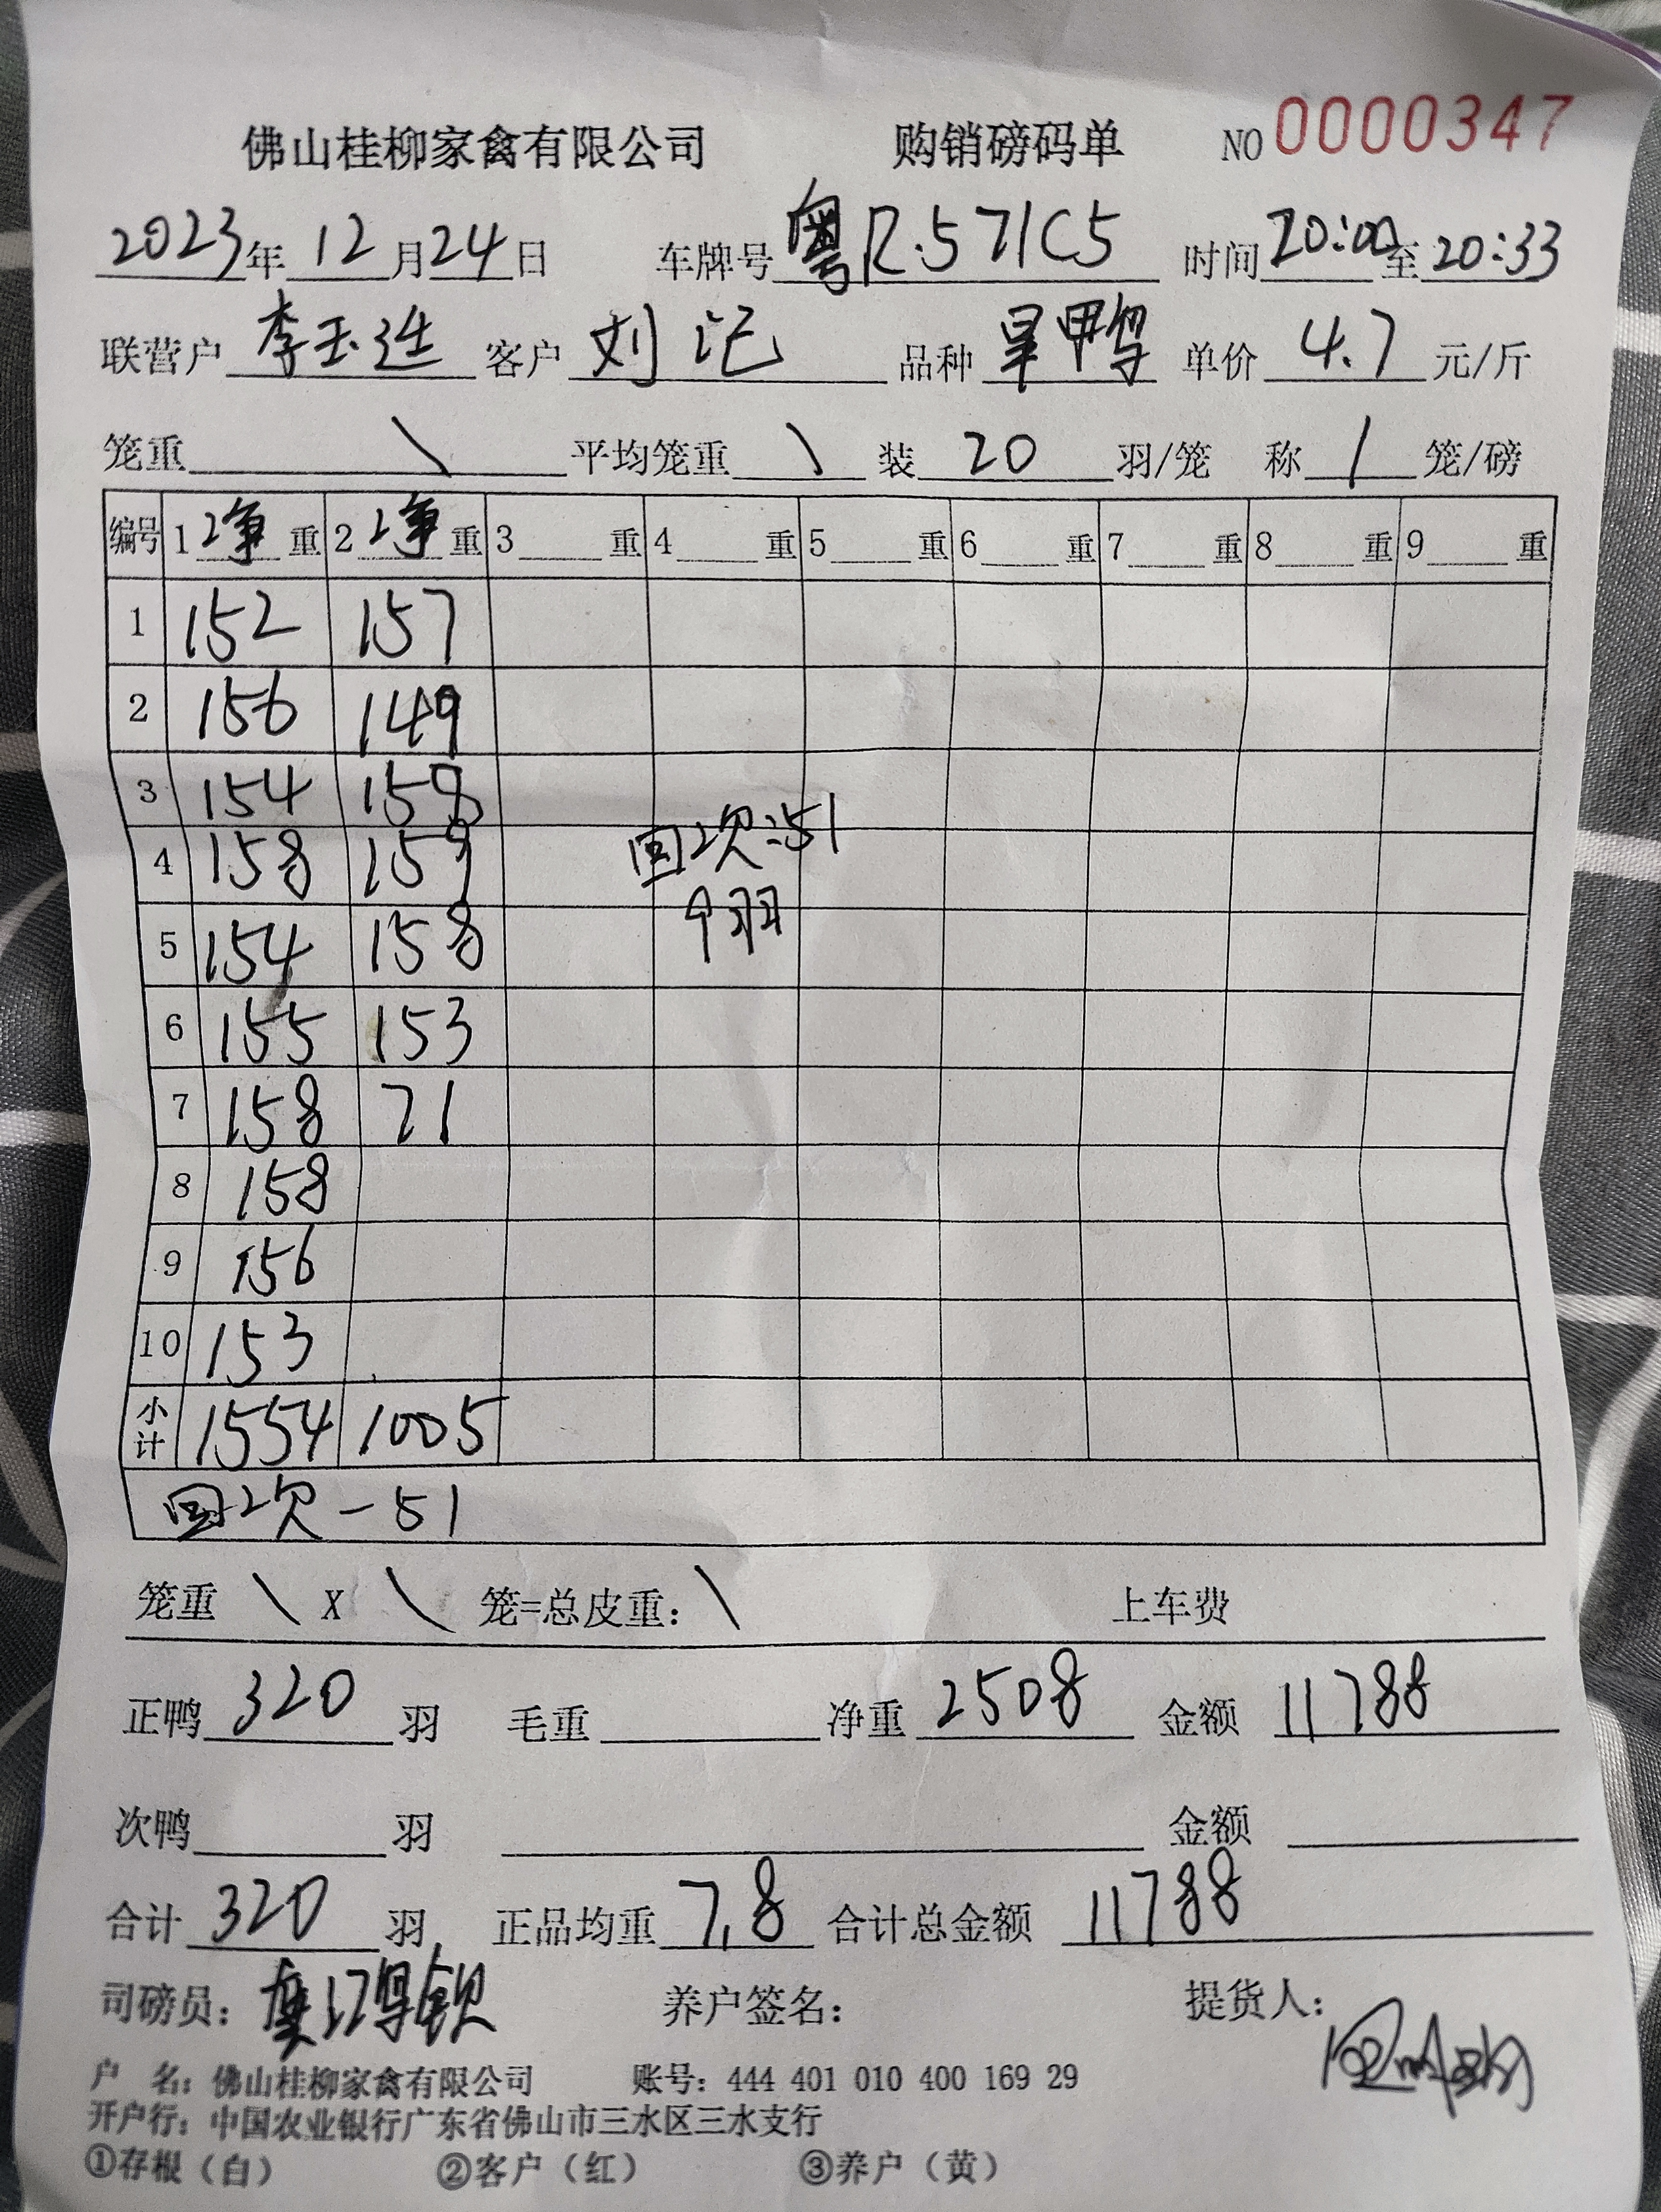 佛山桂柳家禽有限公司 购销磅码单 NO 0000347
2023年 12月24日 车牌号 粤R·571C5 时间 20:00至20:33
联营户 李玉连 客户 刘记 品种 旱鸭 单价 4.7 元/斤
笼重 \ 平均笼重 \ 装 20 羽/笼 称 1 笼/磅
编号 1 净 重 2 净 重 3 重 4 重 5 重 6 重 7 重 8 重 9 重
1 152 157
2 156 149
3 154 158
4 158 159 回次:51
5 154 158 9羽
6 155 153
7 158 71
8 158
9 156
10 153
小计 1554 1005
回次-51
笼重 \ X \ 笼=总皮重: \ 上车费
正鸭 320 羽 毛重 净重 2508 金额 11788
次鸭 羽 金额
合计 320 羽 正品均重 7.8 合计总金额 11788
司磅员: 养户签名: 提货人:
户 名: 佛山桂柳家禽有限公司 账号: 444 401 010 400 169 29
开户行: 中国农业银行广东省佛山市三水区三水支行
①存根（白） ②客户（红） ③养户（黄）